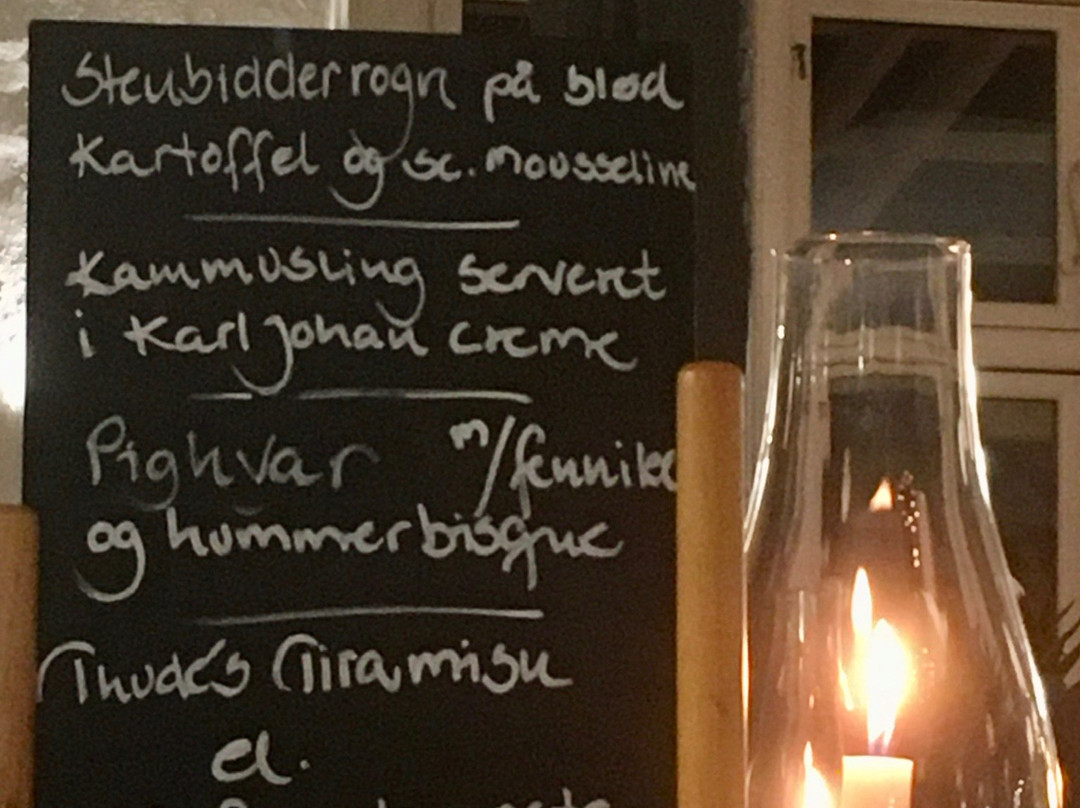 Stenbidderrogn på blød
Kartoffel og sc. mousseline
Kammusling serveret
i Karl Johan creme
Pighvar m/fennikel
og hummerbisque
Thudés Tiramisu
el.